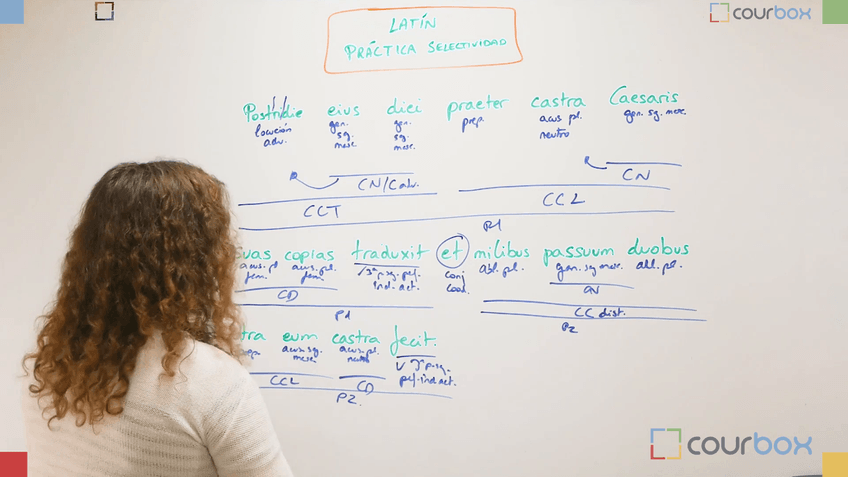 courbox
LATÍN
PRÁCTICA SELECTIVIDAD
Postridie eius diei praeter castra Caesaris
locución adv. gen. sg. masc. gen. sg. masc. prep. acus pl. neutro gen. sg. masc.
CN/Cadv. CN
CCT CCL
P1
uas copias traduxit et milibus passuum duobus
acus. pl. fem. acus. pl. fem. V 3ª p. sg. pef. ind. act. conj. coord. abl. pl. gen. sg masc. abl. pl.
CD CN
P1 CC dist.
P2
tra eum castra fecit.
acus sg. masc acus. pl. neutro V 3ª p. sg. pef. ind act.
CCL CD
P2.
courbox